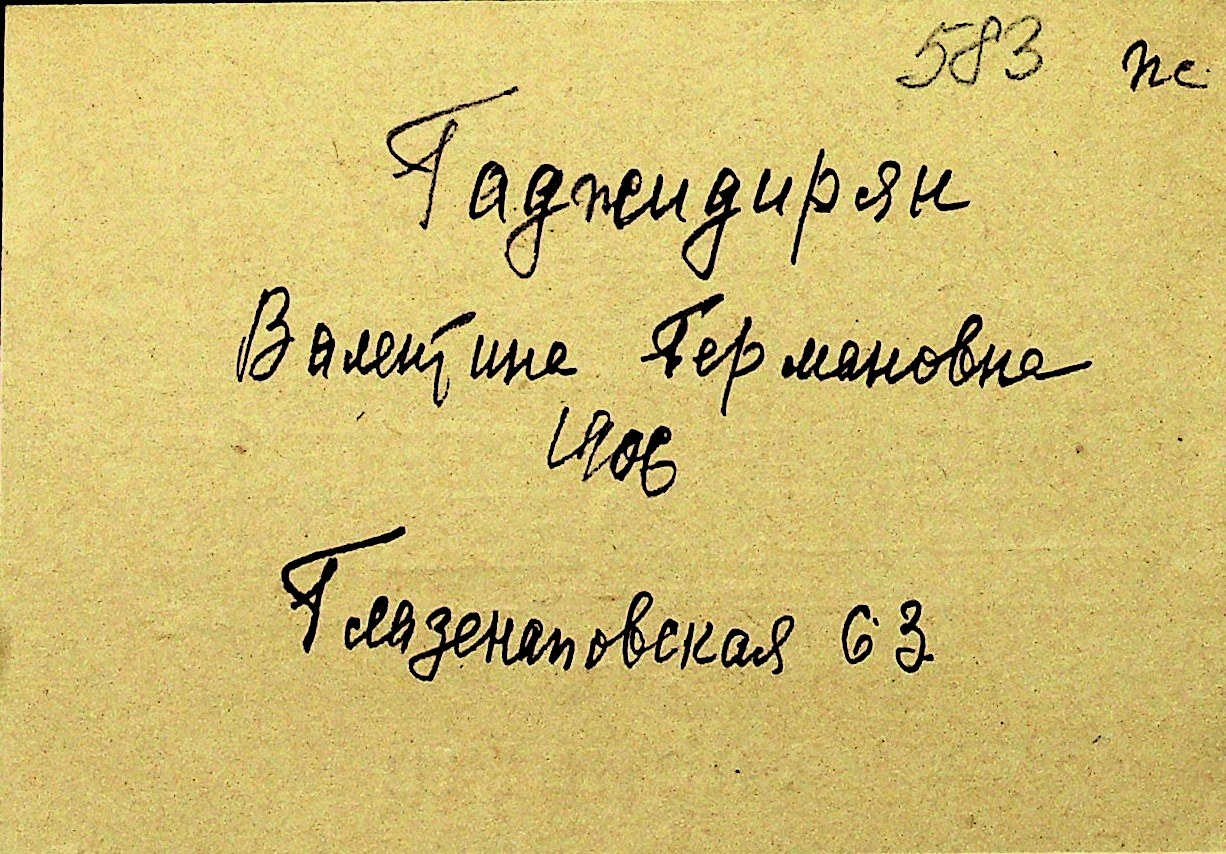 583 пс
Гаджидирян
Валентина Германовна
1908
Глазенаповская 63